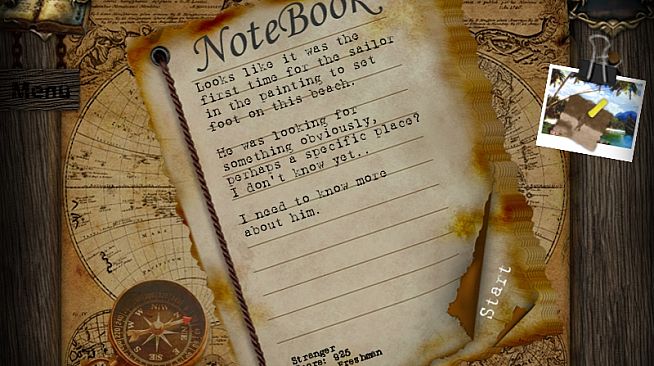 NoteBook
Menu
Looks like it was the
first time for the sailor
in the painting to set
foot on this beach.
He was looking for
something obviously,
perhaps a specific place?
I don't know yet..
I need to know more
about him.
Start
Stranger
925
Freshman